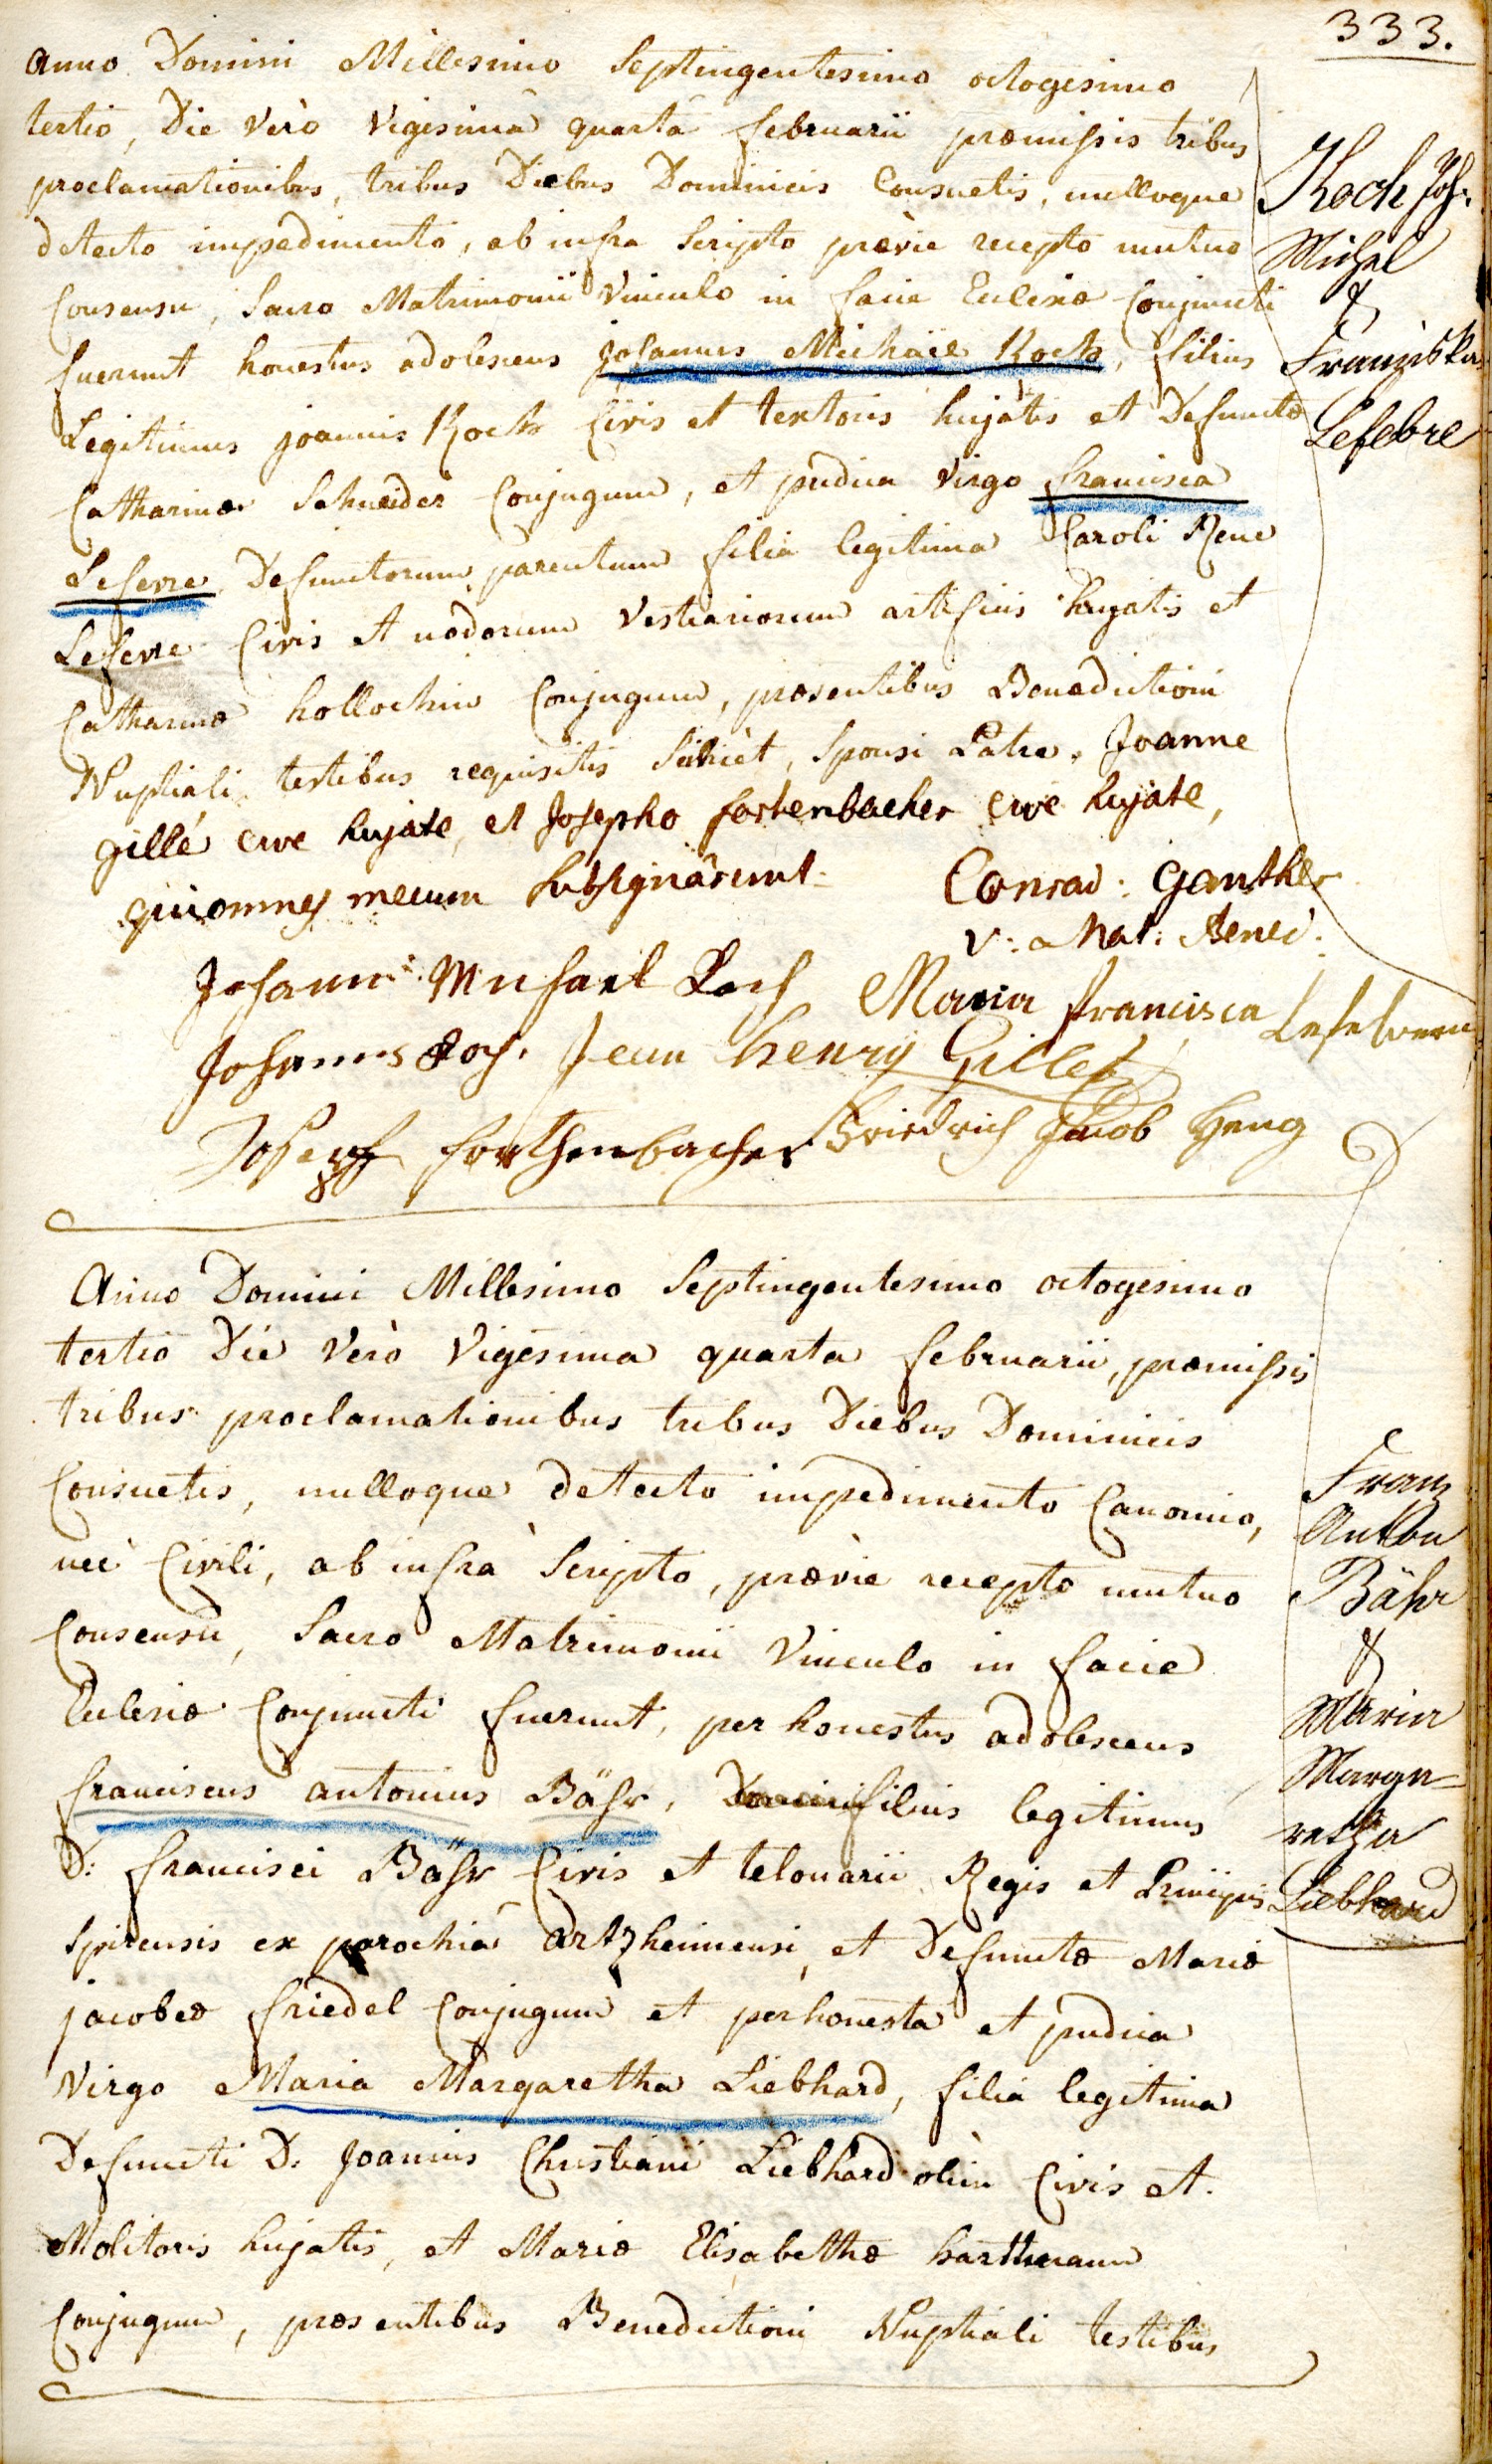 333.
Anno Domini Millesimo Septingentesimo octogesimo
tertio, Die verò vigesimâ quartâ februarii præmissis tribus
proclamationibus, tribus Diebus Dominicis Consuetis, nulloque
detecto impedimento, ab infra scripto prævie recepto mutuo
Consensu, Sacro Matrimonii Vinculo in facie Eclesiæ Conjuncti
fuerunt honestus adolescens Johannes Michäel Koch, filius
Legitimus joannis Koch Civis et textoris hujatis et Defunctæ
Catharinæ Schneider Conjugum, et pudica virgo francisca
Lefevre Defunctorum parentum filia legitima Caroli Rene
Lefevre Civis et nodorum vestiariorum artificis hujatis et
Catharinæ hollochin Conjugum, præsentibus Benedictioni
Nuptiali testibus requisitis scilicèt, Sponsi Patre, Joanne
gillé cive hujate, et Josepho fortenbacher cive hujate,
qui omnes mecum subsignârunt.
Conrad: Ganther
v: a Nat: Bened:
Johann: Michael Koch
Maria francisca Lefebvern
Johannes Koch.
Jean henry Gillet
Joseph forthenbacher
Friedrich Jacob Heng
Koch Joh.
Michel
&
Franciska
Lefebre
Anno Domini Millesimo Septingentesimo octogesimo
tertio Die verò vigesima quarta februarii, præmissis
tribus proclamationibus tribus Diebus Dominicis
Consuetis, nulloque detecto impedimento Canonico,
nec Civili, ab infrà scripto, prævie recepto mutuo
Consensu, Sacro Matrimonii Vinculo in facie
Eclesiæ Conjuncti fuerunt, per honestus adolescens
franciscus antonius Bähr, filius legitimus
D: francisci Bähr Civis et telonarii Regis et Principis
Spirensis ex parochiâ Artzheimensi, et Defunctæ Mariæ
jacobeæ friedel Conjugum et perhonesta et pudica
virgo Maria Margaretha Liebhard, filia legitima
Defuncti D: Joannis Christiani Liebhard olim Civis et
Molitoris hujatis, et Mariæ Elisabethæ harttmann
Conjugum, præsentibus Benedictioni Nuptiali testibus
Franz
Anton
Bähr
&
Maria
Marga-
retha
Liebhard